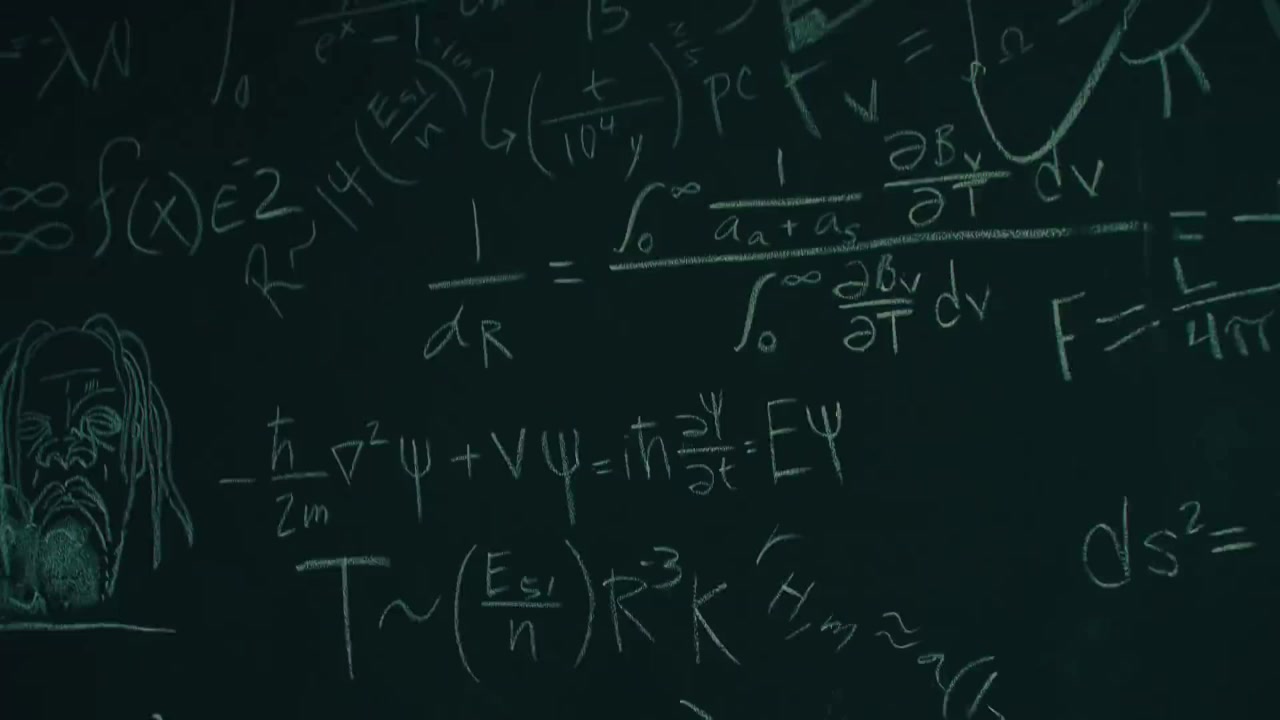 = λN ∫₀ e^x - 1 15
14 (E51/n) (t/10⁴ y)^2/5 pc F_v = Ω π
∞ f(x) E 2
1/α_R = ∫₀^∞ 1/(a_a + a_s) ∂B_v/∂T dv / ∫₀^∞ ∂B_v/∂T dv =
F = L/4π
- ħ/2m ∇²ψ + Vψ = iħ ∂ψ/∂t = Eψ
ds² =
T ~ (E51/n) R⁻³ K